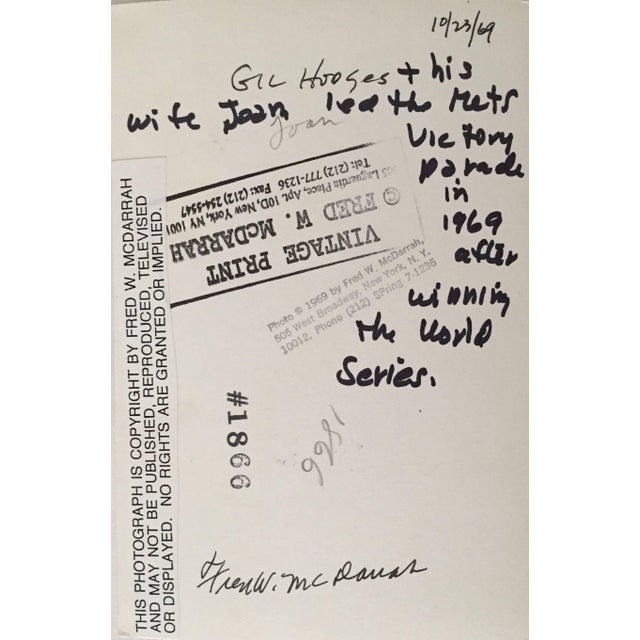 10/23/69
Gil Hodges + his
wife Joan led the Mets
Joan
Victory
parade
in
1969
after
winning
the World
Series.
VINTAGE PRINT
© FRED W. McDARRAH
Laguardia Place, Apt. 10D, New York, NY
Tel: (212) 777-1236 Fax: (212) 254-5547
Photo © 1969 by Fred W. McDarrah,
505 West Broadway, New York, N. Y.
10012, Phone (212) SPring 7-1236
THIS PHOTOGRAPH IS COPYRIGHT BY FRED W. MCDARRAH
AND MAY NOT BE PUBLISHED, REPRODUCED, TELEVISED
OR DISPLAYED. NO RIGHTS ARE GRANTED OR IMPLIED.
#1866
1866
Fred W. McDarrah